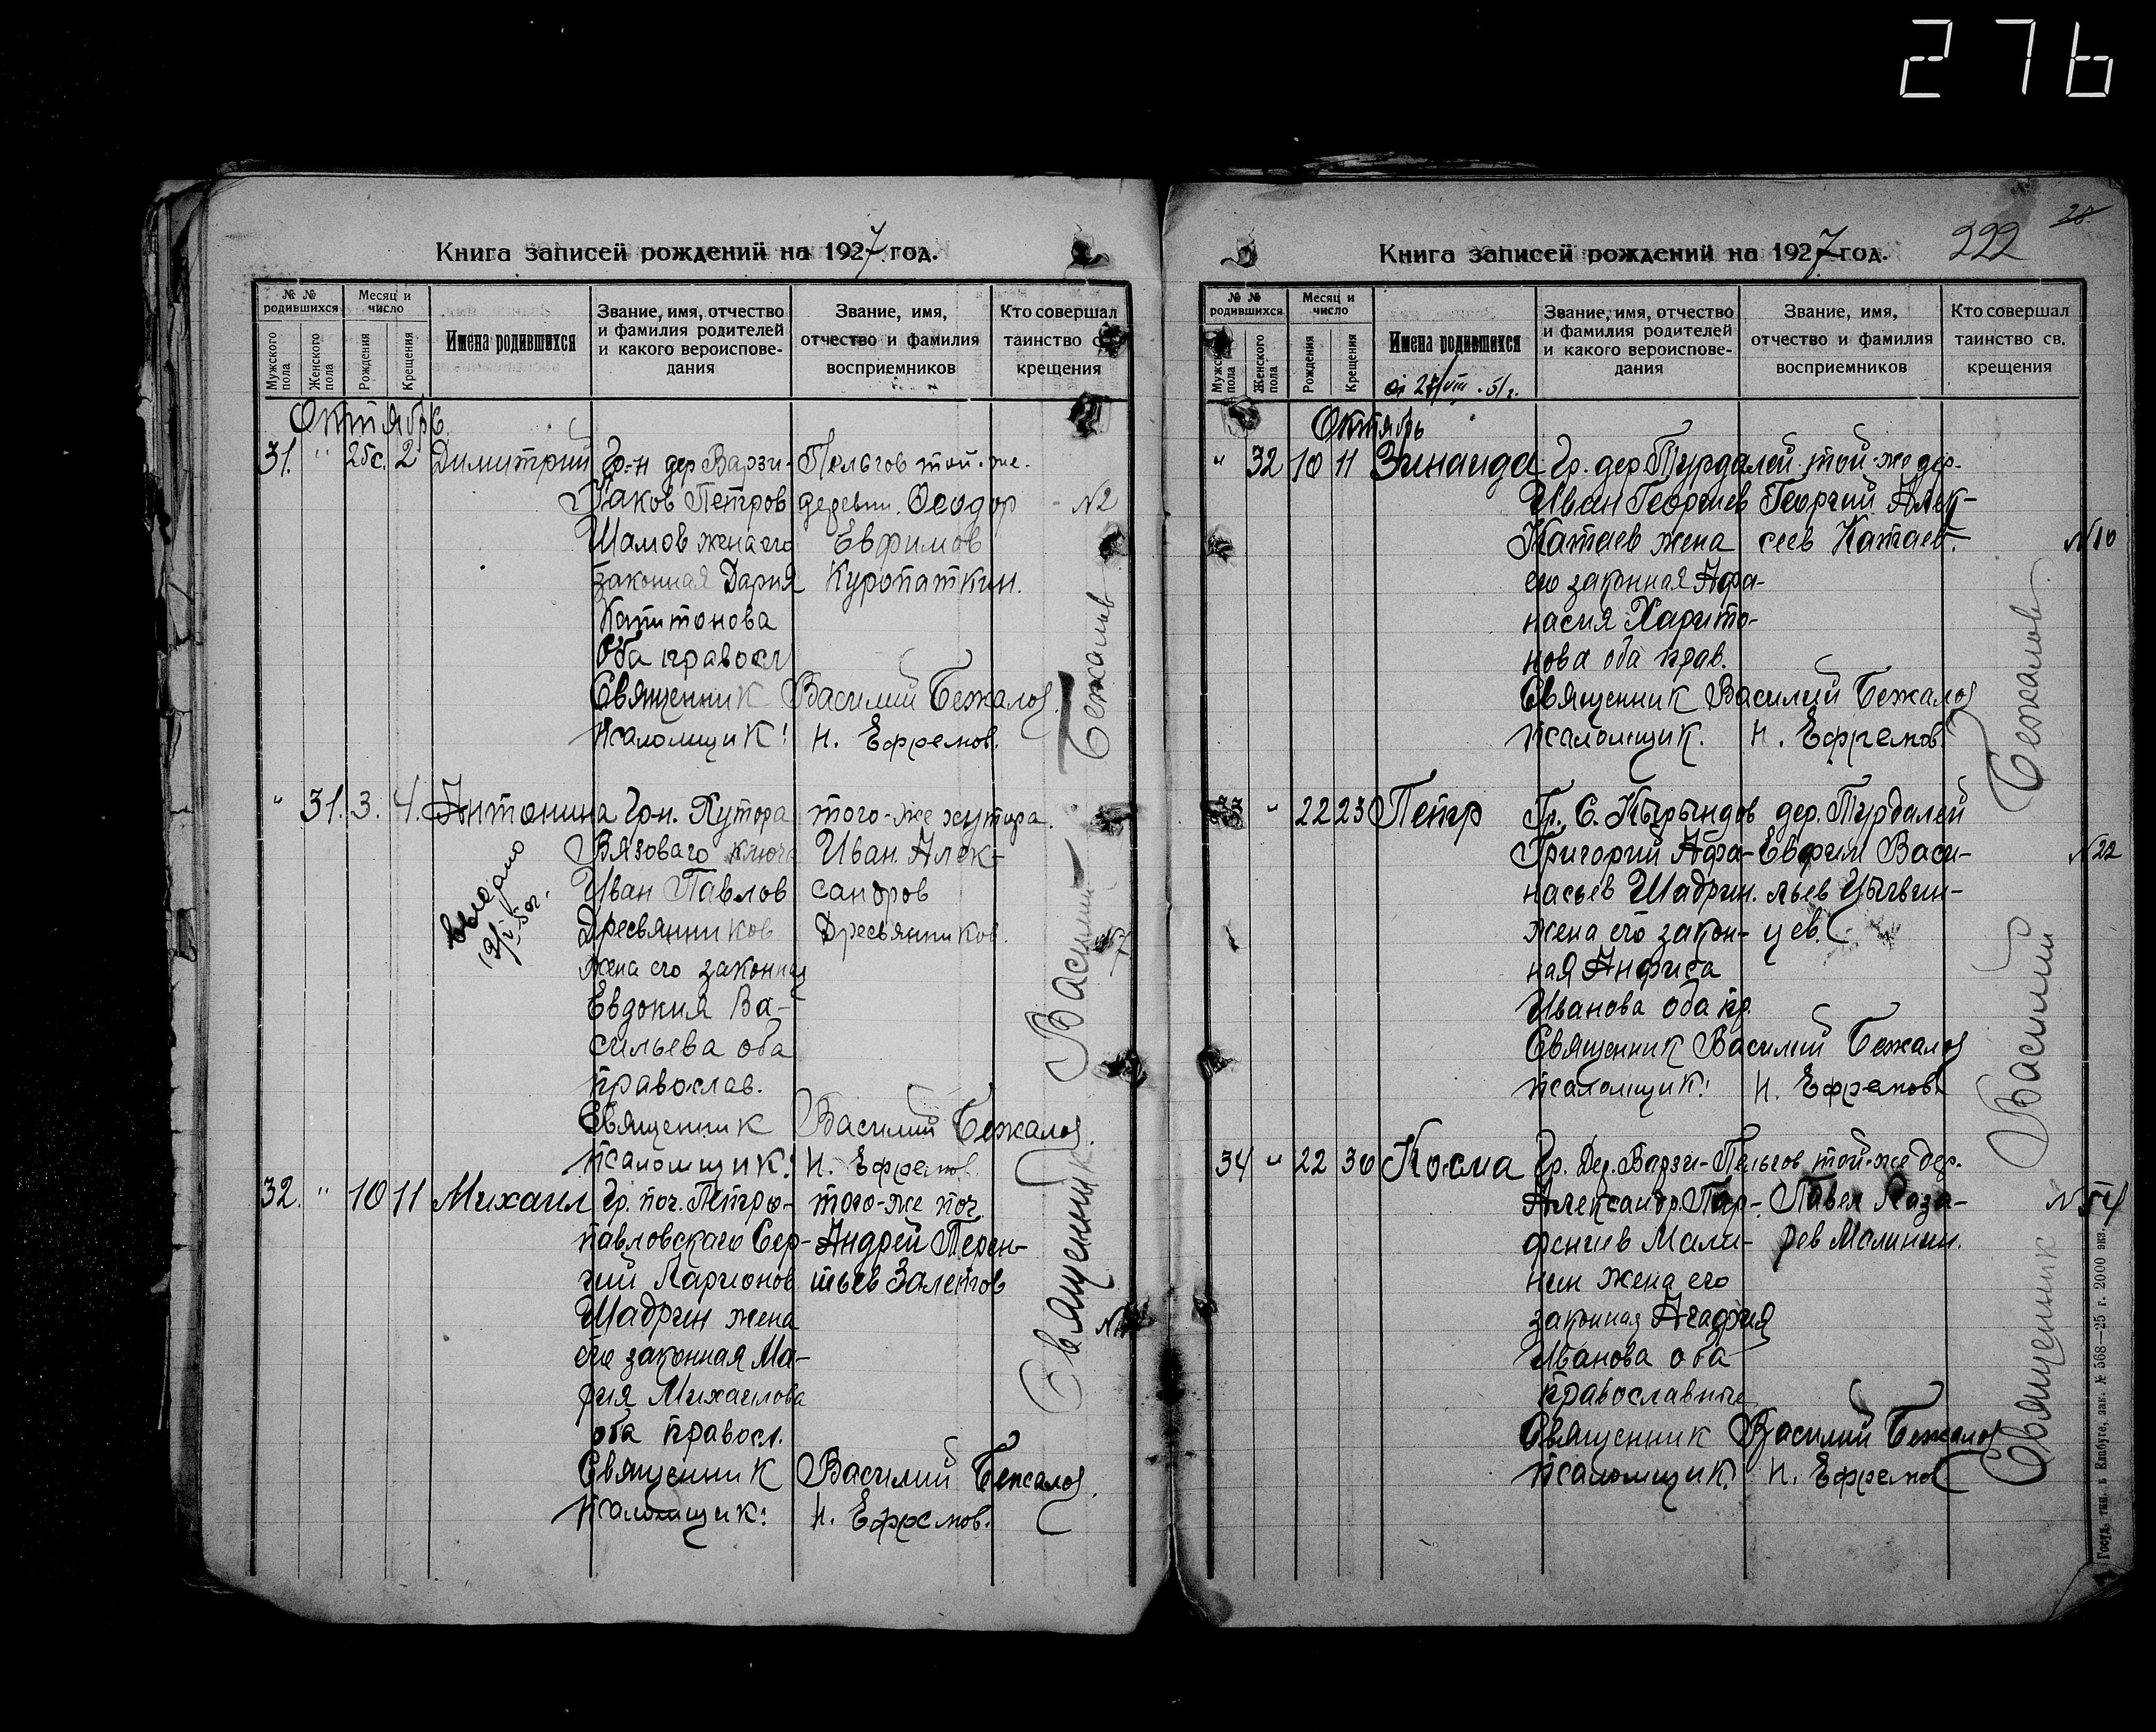 276
Книга записей рождений на 1927 год.
№ № родившихся
Месяц и число
Имена родившихся
Звание, имя, отчество и фамилия родителей и какого вероисповедания
Звание, имя, отчество и фамилия восприемников
Кто совершал таинство св. крещения
Мужского пола
Женского пола
Рождения
Крещения
Октябрь
31. " 2 Димитрий Гр-н дер Варзи- Пельгов той-же
Иаков Петров деревни. Феодор N2
Шамов жена его Евфимов
законная Дария Куропаткин.
Капитонова
Оба правосл
Священник Василий Бежалов.
Псаломщик: Н. Ефремов.
" 31. 3. 4. Антонина Гр-н. Хутора того-же хутора.
Вязоваго ключа Иван Алек-
Иван Павлов сандров
Дресвянников Дресвянников. N7
жена его законная
Евдокия Ва-
сильева оба
православ.
Священник Василий Бежалов.
Псаломщик: Н. Ефремов.
выдано
32. " 10 11 Михаил Гр. поч. Петро- того-же поч.
павловскаго Сер- Андрей Терен-
гий Ларионов тьев Залетов
Шадрин жена
его законная Ма-
рия Михаилова
оба правосл.
Священник Василий Бежалов.
Псаломщик: Н. Ефремов.
Священник Василий Бежалов
Книга записей рождений на 1927 год.
222
28
№ № родившихся
Месяц и число
Имена родившихся
Звание, имя, отчество и фамилия родителей и какого вероисповедания
Звание, имя, отчество и фамилия восприемников
Кто совершал таинство св. крещения
Мужского пола
Женского пола
Рождения
Крещения
Октябрь
" 32 10 11 Зинаида Гр. дер. Турдалей той-же дер.
Иван Георгиев Георгий Алек-
Катаев жена сеев Катаев. N10
его законная Афа-
насия Харито-
нова оба прав.
Священник Василий Бежалов
Псаломщик. Н. Ефремов.
33 " 22 23 Петр Гр. С. Кырындов дер. Турдалей
Григорий Афа- Евфим Васи- N22
насьев Шадрин. льев Цыгвин-
жена его закон- цев.
ная Анфиса
Иванова оба пр.
Священник Василий Бежалов
Псаломщик: Н. Ефремов.
34 " 22 30 Косма Гр. Дер. Варзи-Пельгов той-же дер.
Александр Пар- Павел Лаза- N54
фениев Мали- рев Малинин.
нин жена его
законная Агафия
Иванова оба
православные
Священник Василий Бежалов
Псаломщик. Н. Ефремов
Священник Василий Бежалов
Госуд. тип. в Елабуге, зак. № 568—25 г. 2000 экз.